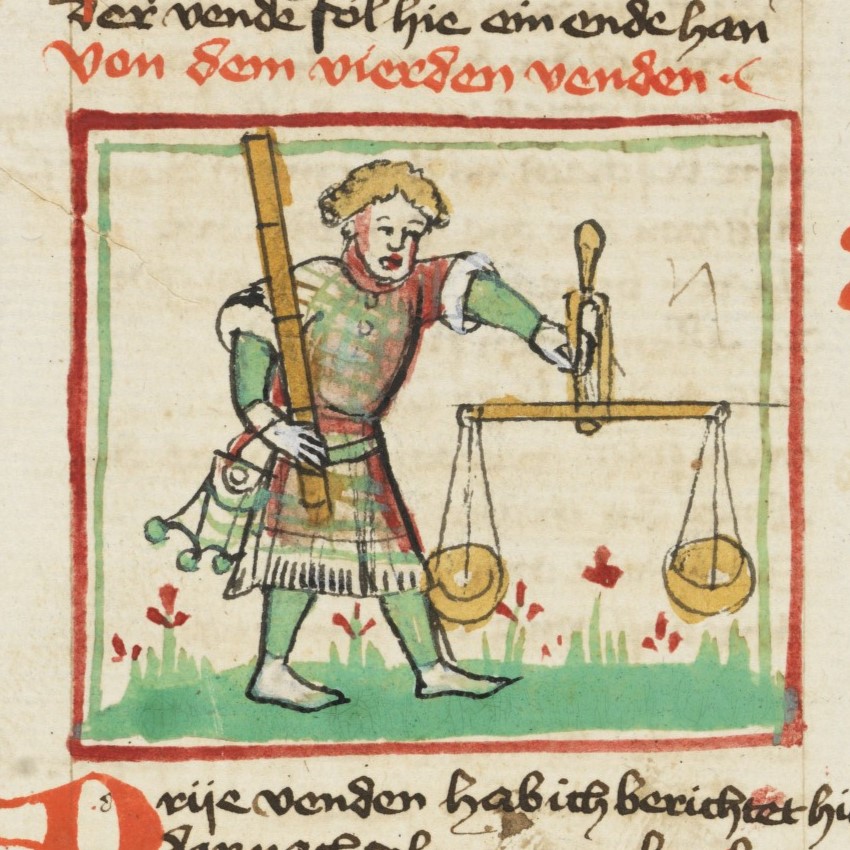 Der vende sol hie ein ende han
Von dem vierden venden
Drije venden hab ich berichtet hi